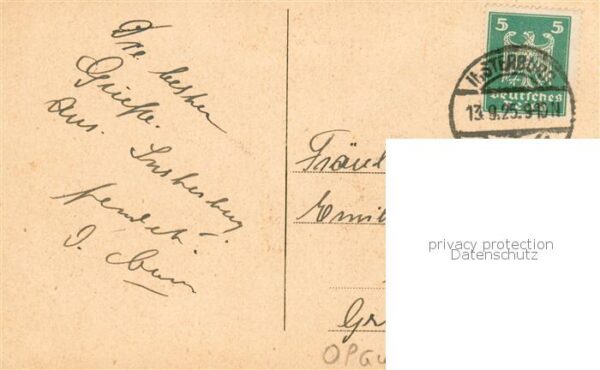 Die besten
Grüße.
Aus. Insterburg.
sendet.
J.
5 5
INSTERBURG
13.9.25.9-10 N
Deutsches
Fräul
Emil
Gr
OPGu
privacy protection
Datenschutz